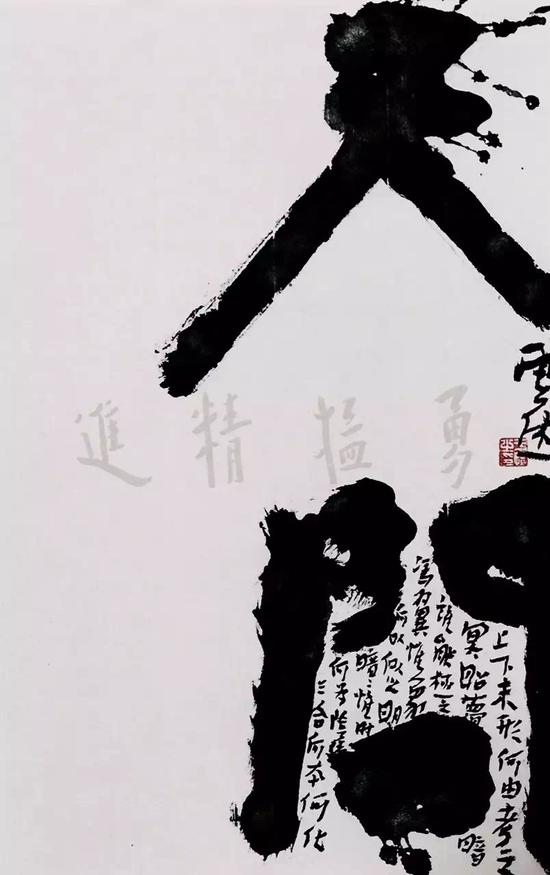 天
問
上下未形何由考之
冥昭瞢暗
誰能極之
翼惟象
何以之明
暗〻惟时
何陰陽
三合何本何化
勇猛精進